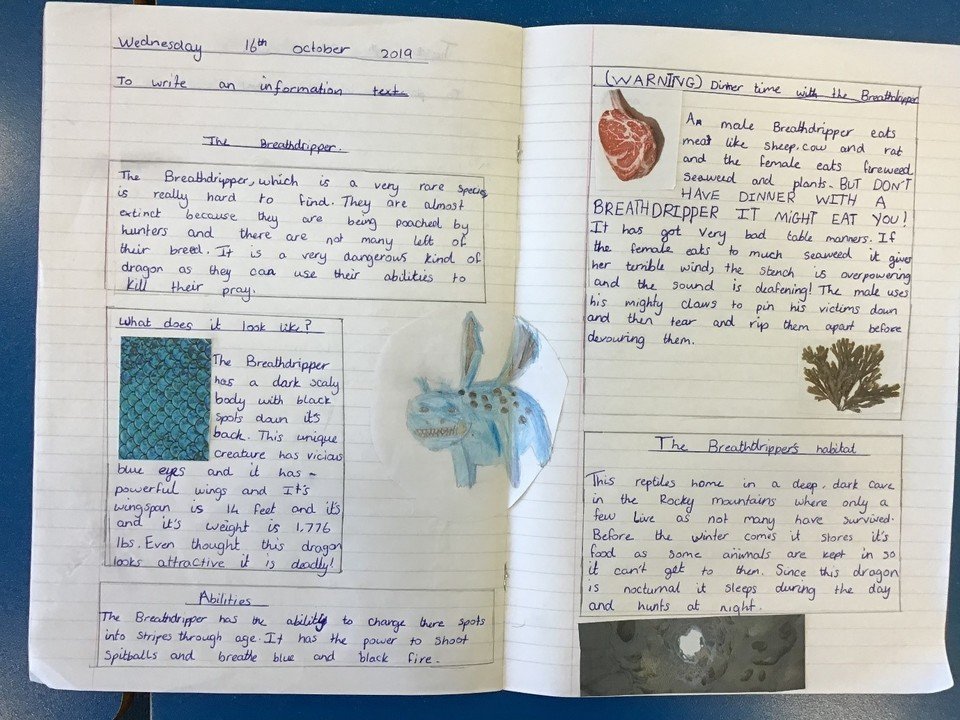 Wednesday 16th October 2019
To write an information text
The Breathdripper.
The Breathdripper, which is a very rare species
is really hard to find. They are almost
extinct because they are being poached by
hunters and there are not many left of
their breed. It is a very dangerous kind of
dragon as they can use their abilities to
kill their pray.
What does it look like?
The Breathdripper
has a dark scaly
body with black
spots down it's
back. This unique
creature has vicious
blue eyes and it has
powerful wings and It's
wingspan is 14 feet and it's
and it's weight is 1,776
lbs. Even thought this dragon
looks attractive it is deadly!
Abilities
The Breathdripper has the ability to change there spots
into stripes through age. It has the power to shoot
spitballs and breathe blue and black fire.
(WARNING) Dinner time with the Breathdripper
A male Breathdripper eats
meat like sheep, cow and rat
and the female eats fireweed
seaweed and plants. BUT DON'T
HAVE DINNER WITH A
BREATHDRIPPER IT MIGHT EAT YOU!
It has got very bad table manners. If
the female eats to much seaweed it gives
her terrible wind, the stench is overpowering
and the sound is deafening! The male uses
his mighty claws to pin his victims down
and then tear and rip them apart before
devouring them.
The Breathdripper's habitat
This reptiles home in a deep, dark cave
in the Rocky mountains where only a
few live as not many have survived.
Before the winter comes it stores it's
food as some animals are kept in so
it can't get to them. Since this dragon
is nocturnal it sleeps during the day
and hunts at night.